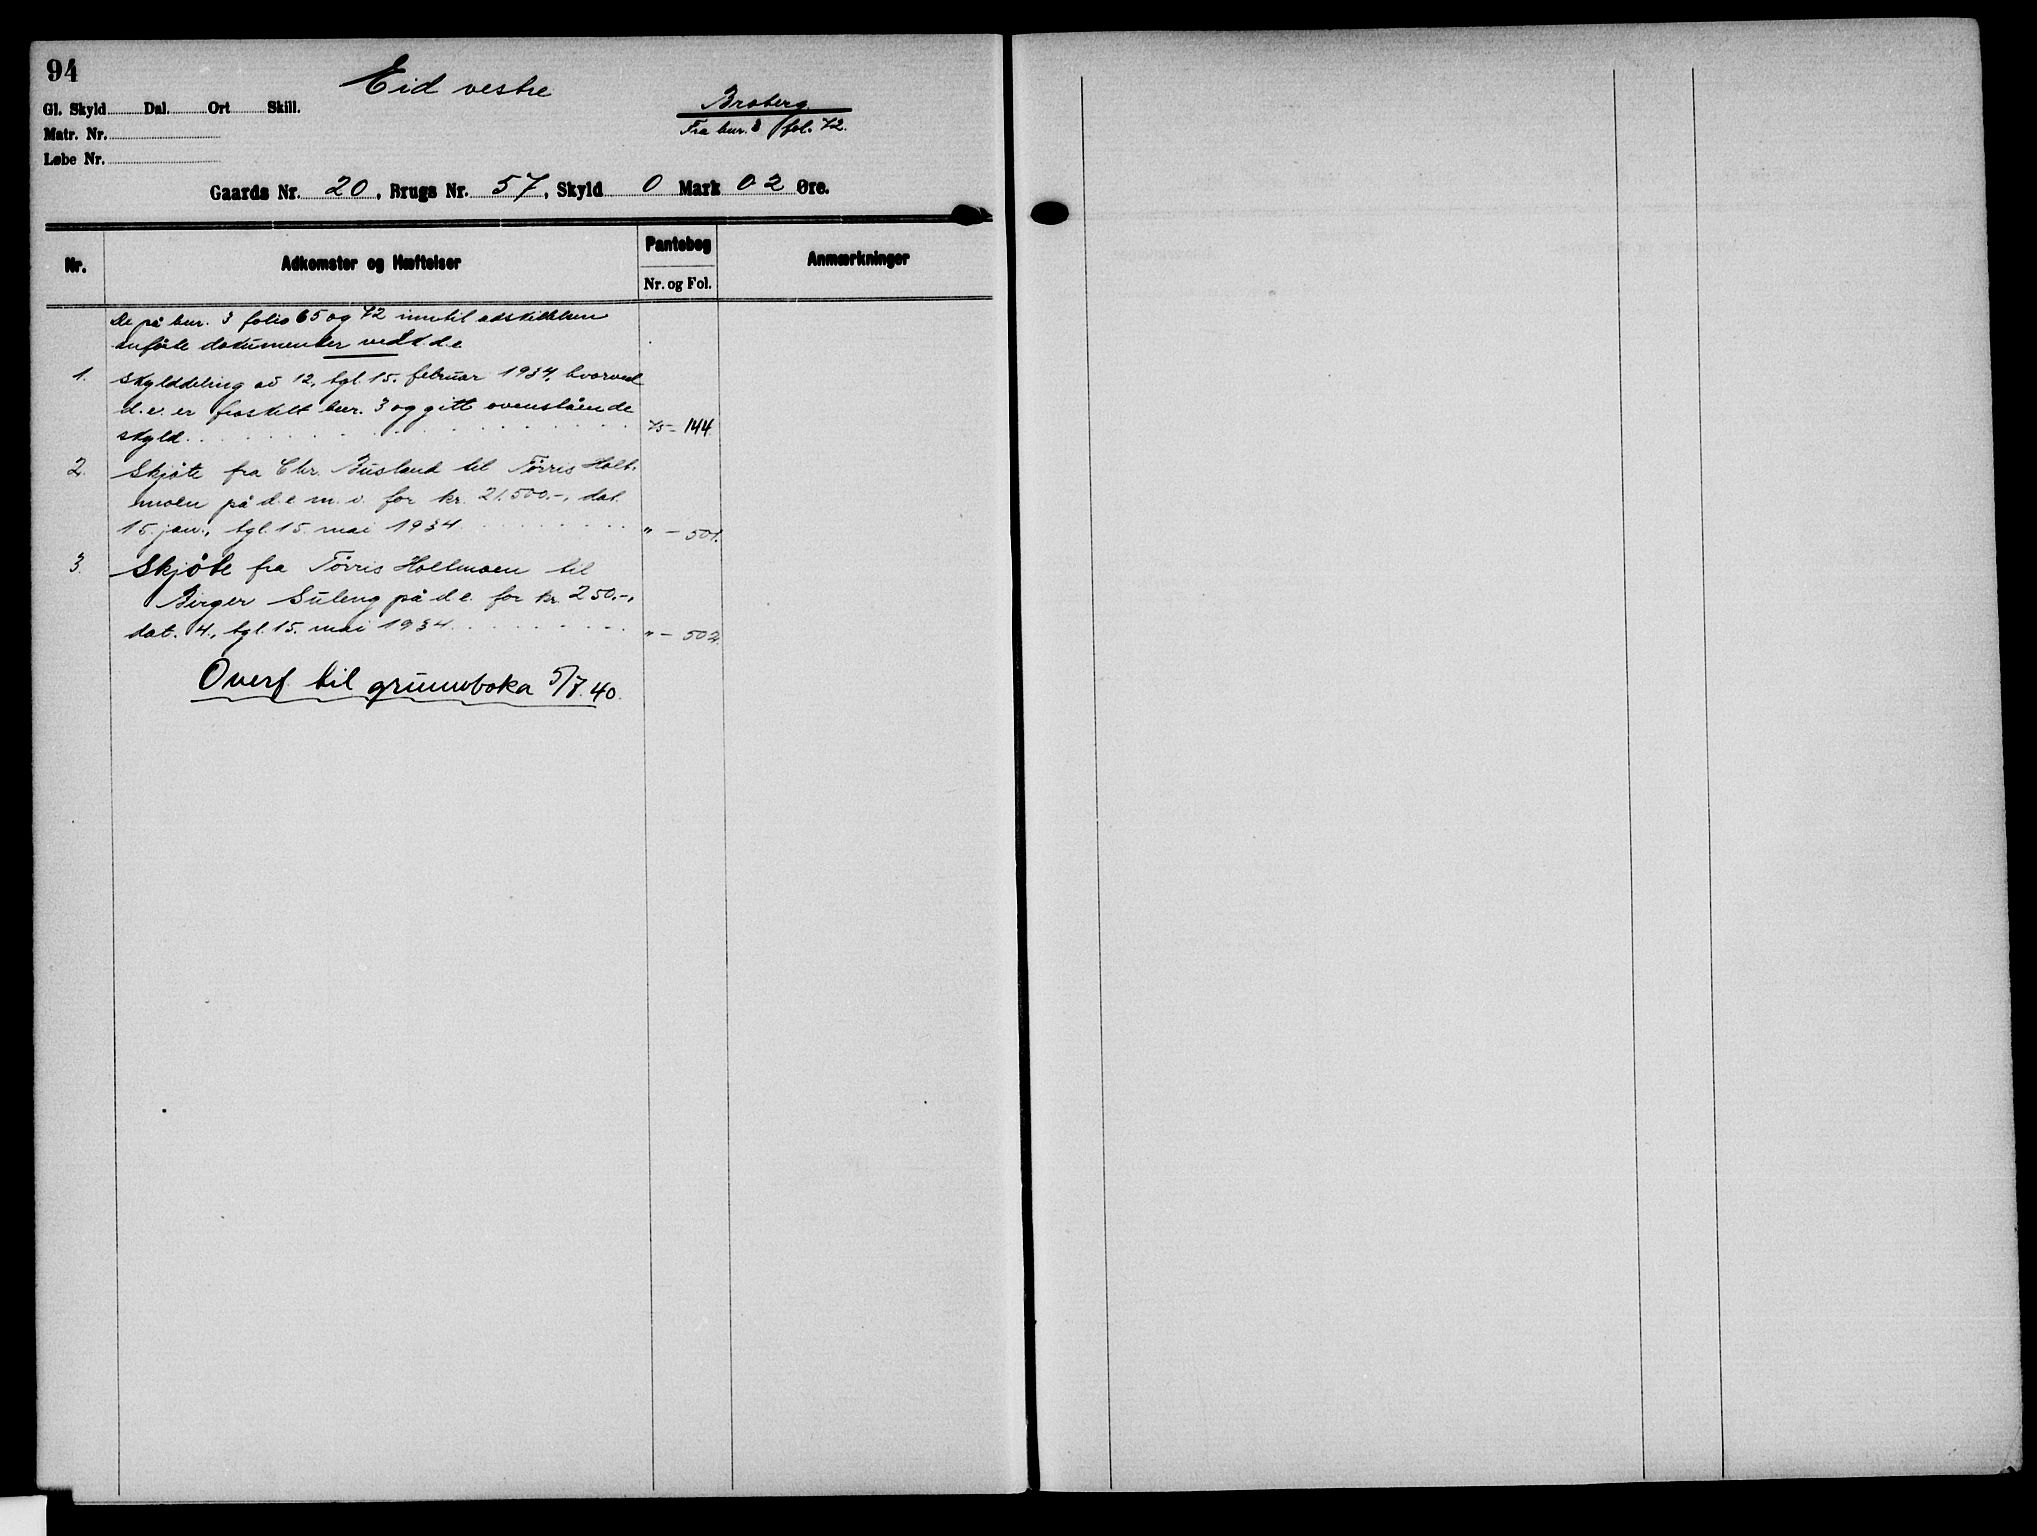 94
Eid vestre
Gl. Skyld Dal. Ort Skill.
Broberg.
Matr. Nr.
Fra bnr. 3 fol. 72.
Løbe Nr.
Gaards Nr. 20, Brugs Nr. 57, Skyld 0 Mark 02 Øre.
Nr. Adkomster og Hæftelser Pantebog Nr. og Fol. Anmærkninger
De på bnr. 3 folio 65 og 72 inntil adskillelsen
anførte dokumenter vedk. d.e.
1. Skylddeling av 12, tgl. 15. februar 1934, hvorved
d.e. er fraskilt bnr. 3 og gitt ovenstående
skyld. 75 - 144.
2. Skjøte fra Chr. Busland til Tørris Holt-
moen på d.e. m.v. for kr. 21.500.-, dat.
15. jan., tgl. 15. mai 1934 " - 501.
3. Skjøte fra Tørris Holtmoen til
Birger Suleng på d.e. for kr. 250.-,
dat. 4., tgl. 15. mai 1934 " - 502.
Overf. til grunnboka 5/7.40.